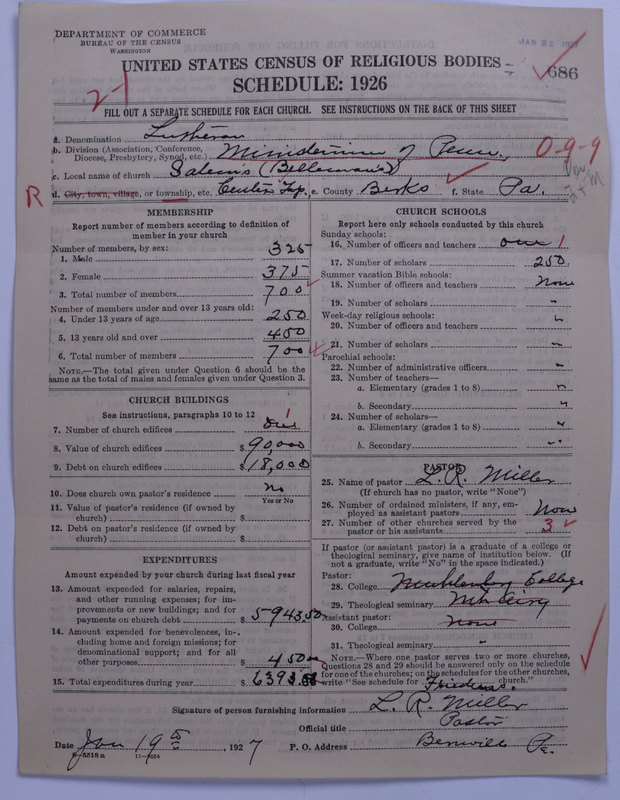 DEPARTMENT OF COMMERCE
BUREAU OF THE CENSUS
WASHINGTON
JAN 22 1927
UNITED STATES CENSUS OF RELIGIOUS BODIES
686
SCHEDULE: 1926
2-1
FILL OUT A SEPARATE SCHEDULE FOR EACH CHURCH. SEE INSTRUCTIONS ON THE BACK OF THIS SHEET
a. Denomination Lutheran
b. Division (Association, Conference, Diocese, Presbytery, Synod, etc.) Ministerium of Penn., 0-9-9
c. Local name of church Salem's (Belleman's)
R d. City, town, village, or township, etc. Center Twp. e. County Berks f. State Pa.
MEMBERSHIP
Report number of members according to definition of member in your church
Number of members, by sex:
1. Male 325
2. Female 375
3. Total number of members 700
Number of members under and over 13 years old:
4. Under 13 years of age 250
5. 13 years old and over 450
6. Total number of members 700
NOTE.—The total given under Question 6 should be the same as the total of males and females given under Question 3.
CHURCH BUILDINGS
See instructions, paragraphs 10 to 12
7. Number of church edifices one 1
8. Value of church edifices $ 90,000
9. Debt on church edifices $ 18,000
10. Does church own pastor's residence No
Yes or No
11. Value of pastor's residence (if owned by church) $
12. Debt on pastor's residence (if owned by church) $
EXPENDITURES
Amount expended by your church during last fiscal year
13. Amount expended for salaries, repairs, and other running expenses; for improvements or new buildings; and for payments on church debt $ 5943.50
14. Amount expended for benevolences, including home and foreign missions; for denominational support; and for all other purposes $ 450
15. Total expenditures during year $ 6393.50
CHURCH SCHOOLS
Report here only schools conducted by this church
Sunday schools:
16. Number of officers and teachers one 1
17. Number of scholars 250
Summer vacation Bible schools:
18. Number of officers and teachers None
19. Number of scholars "
Week-day religious schools:
20. Number of officers and teachers "
21. Number of scholars "
Parochial schools:
22. Number of administrative officers "
23. Number of teachers—
a. Elementary (grades 1 to 8) "
b. Secondary "
24. Number of scholars—
a. Elementary (grades 1 to 8) "
b. Secondary "
PASTOR
25. Name of pastor L. R. Miller
(If church has no pastor, write "None")
26. Number of ordained ministers, if any, employed as assistant pastors None
27. Number of other churches served by the pastor or his assistants 3
If pastor (or assistant pastor) is a graduate of a college or theological seminary, give name of institution below. (If not a graduate, write "No" in the space indicated.)
Pastor:
28. College Muhlenberg College
29. Theological seminary Mt. Airy
Assistant pastor:
30. College None
31. Theological seminary "
NOTE.—Where one pastor serves two or more churches, Questions 28 and 29 should be answered only on the schedule for one of the churches; on the schedules for the other churches, write "See schedule for Friedens. church."
Signature of person furnishing information L. R. Miller
Official title Pastor
Date Jan 19th, 1927 P. O. Address Bernville Pa.
8-5518 a 11-9034